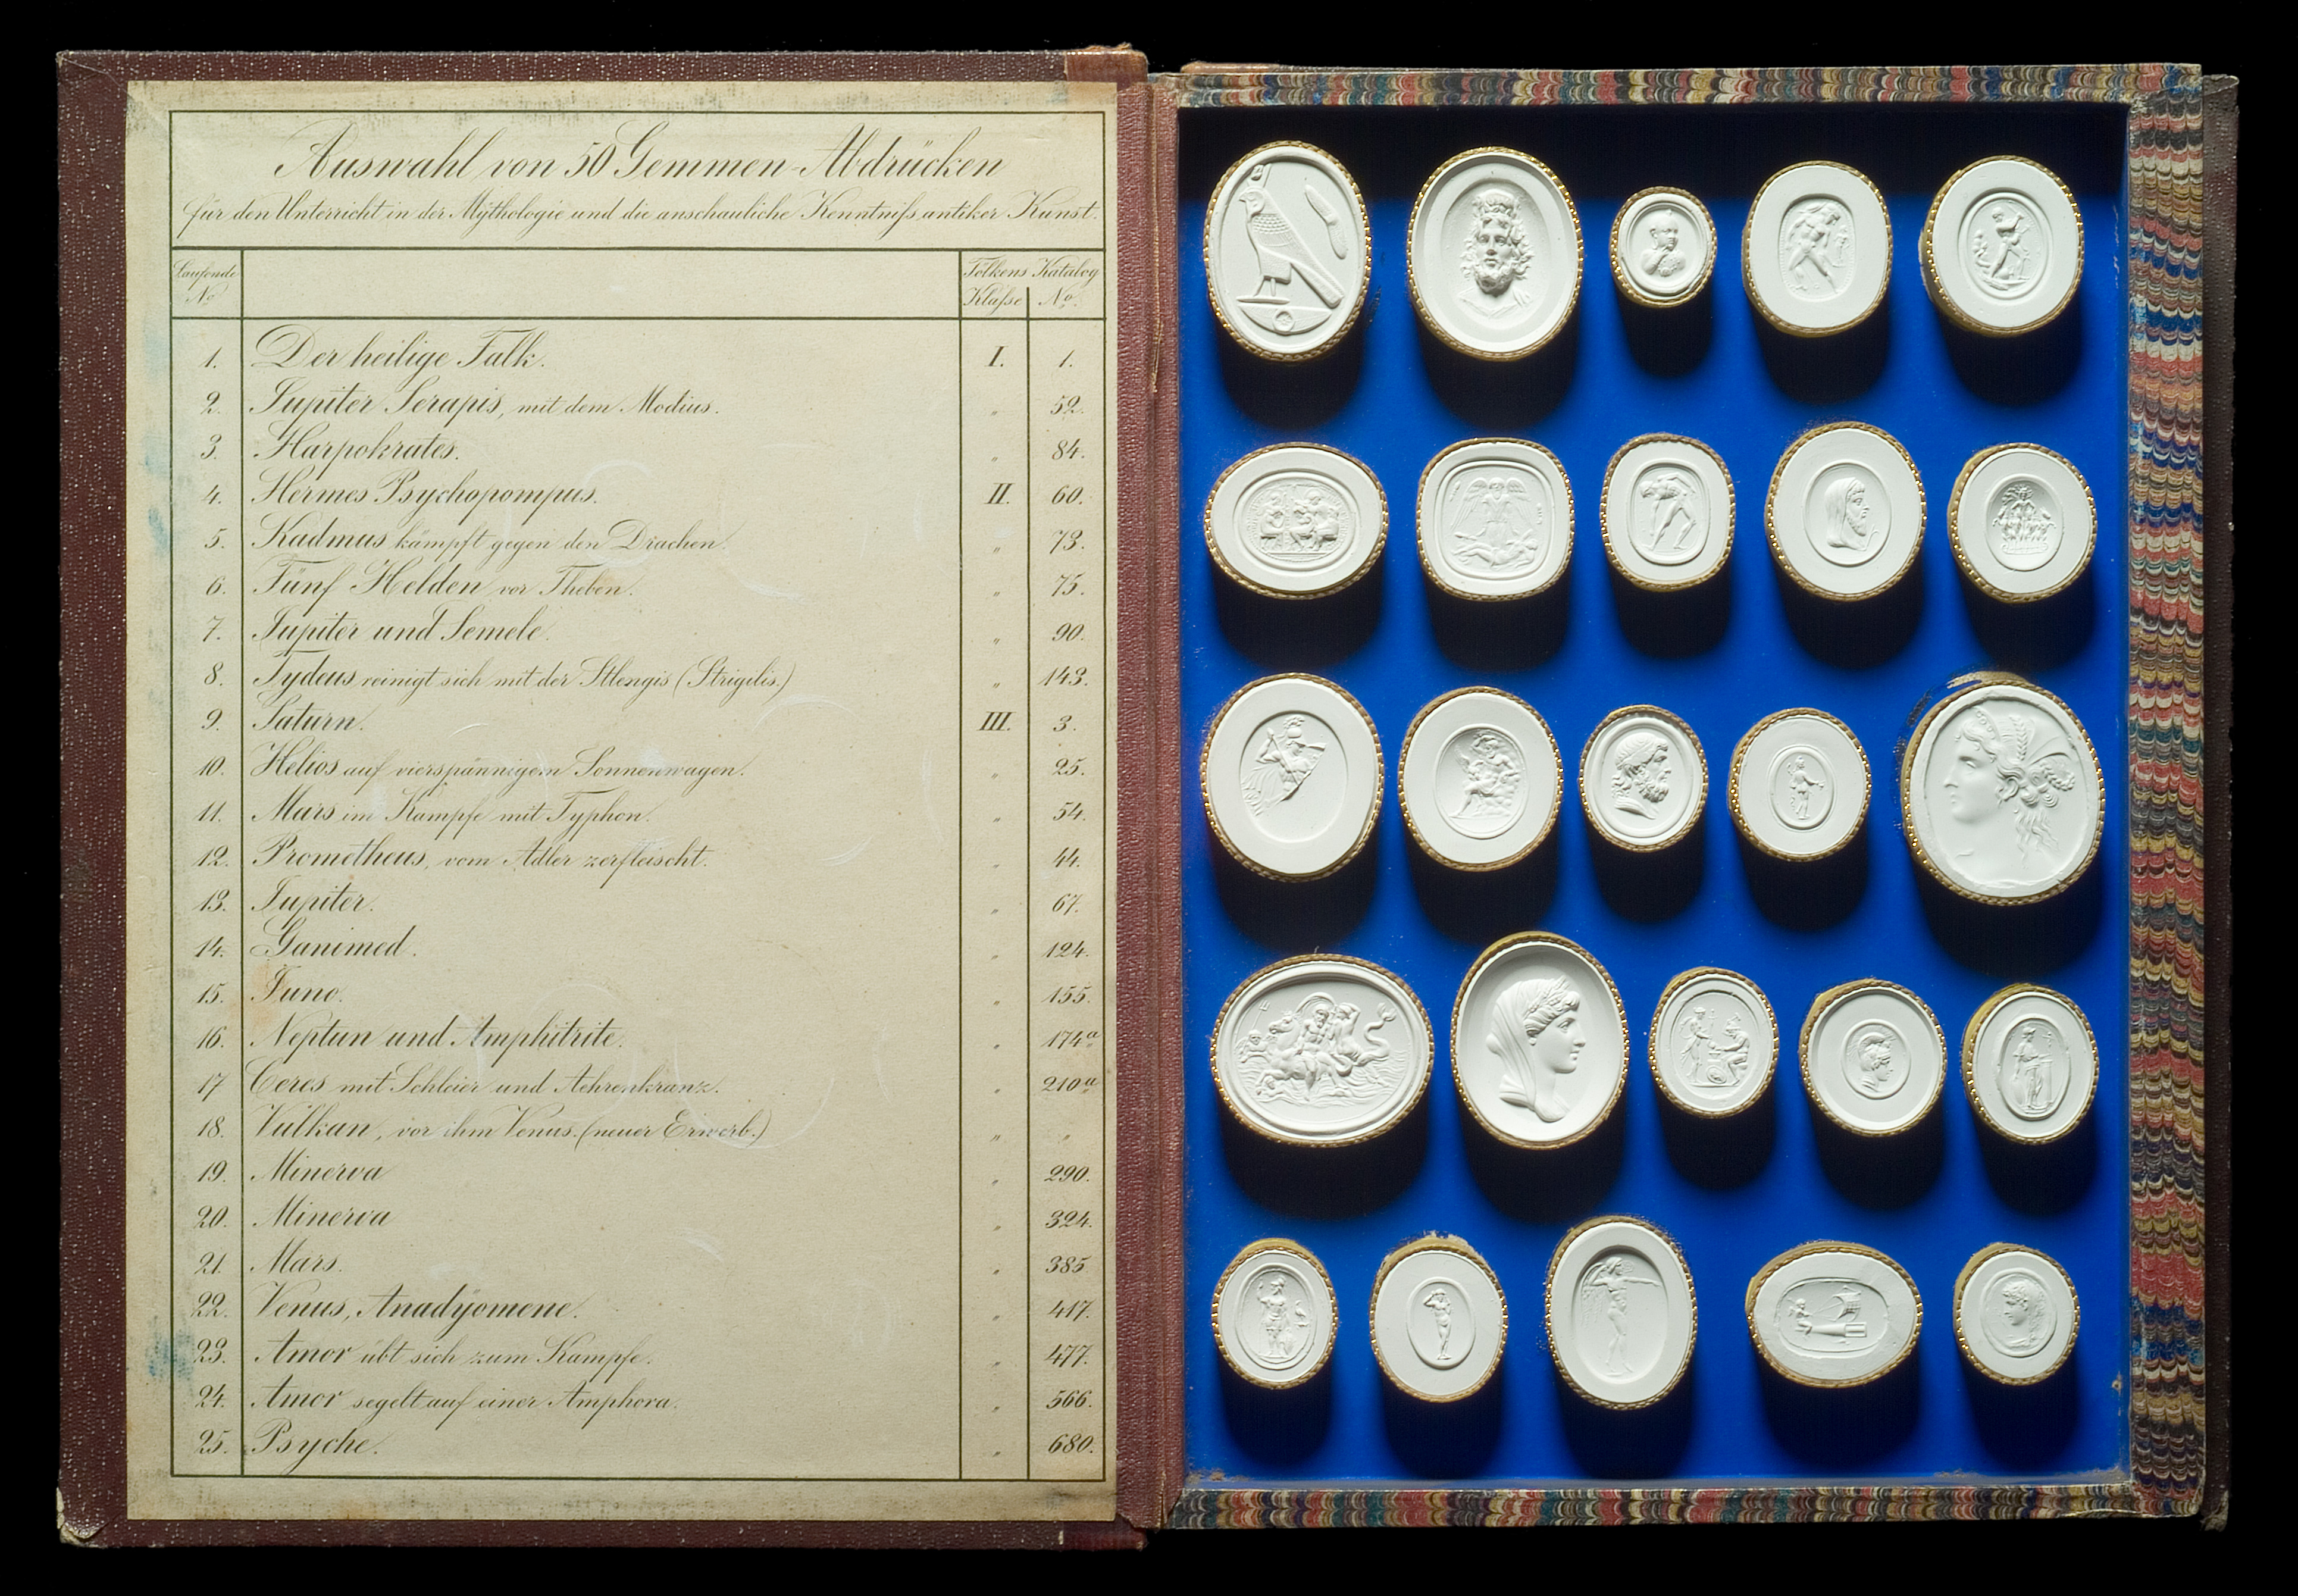 Auswahl von 50 Gemmen-Abdrücken
für den Unterricht in der Mythologie und die anschauliche Kenntniſs antiker Kunst.
Laufende No. Tölkens Katalog
Klaſse No.
1. Der heilige Falk. I. 1.
2. Jupiter Serapis, mit dem Modius. „ 52.
3. Harpokrates. „ 84.
4. Hermes Psychopompus. II. 60.
5. Kadmus kämpft gegen den Drachen. „ 73.
6. Fünf Helden vor Theben. „ 75.
7. Jupiter und Semele. „ 90.
8. Tydeus reinigt sich mit der Stlengis (Strigilis.) „ 143.
9. Saturn. III. 3.
10. Helios auf vierspännigem Sonnenwagen. „ 25.
11. Mars im Kampfe mit Typhon. „ 54.
12. Prometheus, vom Adler zerfleischt. „ 44.
13. Jupiter. „ 67.
14. Ganimed. „ 124.
15. Juno. „ 155.
16. Neptun und Amphitrite. „ 174a
17. Ceres mit Schleier und Aehrenkranz. „ 210a
18. Vulkan, vor ihm Venus. (neuer Erwerb.) „ „
19. Minerva „ 290.
20. Minerva „ 324.
21. Mars. „ 385.
22. Venus, Anadyomene. „ 417.
23. Amor übt sich zum Kampfe. „ 477.
24. Amor segelt auf einer Amphora. „ 566.
25. Psyche. „ 680.